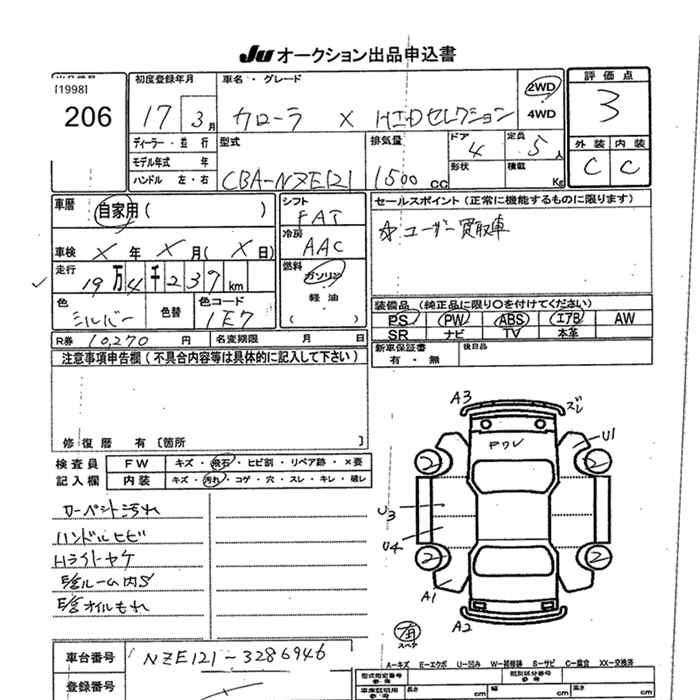 Ju オークション出品申込書
[1998]
206
初度登録年月
17 3月
車名・グレード
カローラ X HIDセレクション
2WD
4WD
評価点
3
外装 内装
C C
ディーラー・並行
モデル年式 年
ハンドル 左・右
型式
CBA-NZE121
排気量
1500 CC
ドア
4
定員
5人
形状
積載
Kg
車歴
自家用( )
車検 X 年 X 月( X 日)
走行
19万4千239km
色
シルバー
色替
色コード
1E7
シフト
FAT
冷房
AAC
燃料
ガソリン
軽油
( )
セールスポイント(正常に機能するものに限ります)
☆ユーザー買取車
装備品(純正品に限り○を付けてください)
PS PW ABS エアB AW
SR ナビ TV 本革
新車保証書
有・無
後日品
R券 10,270円
名変期限 月 日
注意事項申告欄(不具合内容等は具体的に記入して下さい)
修復歴 有〔箇所 〕
検査員
記入欄
FW キズ・飛石・ヒビ割・リペア跡・×要
内装 キズ・汚れ・コゲ・穴・スレ・キレ・破レ
カーペット汚れ
ハンドルヒビ
Hライトヤケ
ルーム内S
オイルもれ
A3
ズレ
U1
PウレU3
U4
A1
A2
2 2
2 2
有
スペア
車台番号 NZE121-3286946
登録番号
A-キズ E-エクボ U-凹み W-補修跡 S-サビ C-腐食 XX-交換済
型式指定番号
参考
類別区分番号
参考
車庫証明用
参考
長さ cm
幅 cm
高さ cm